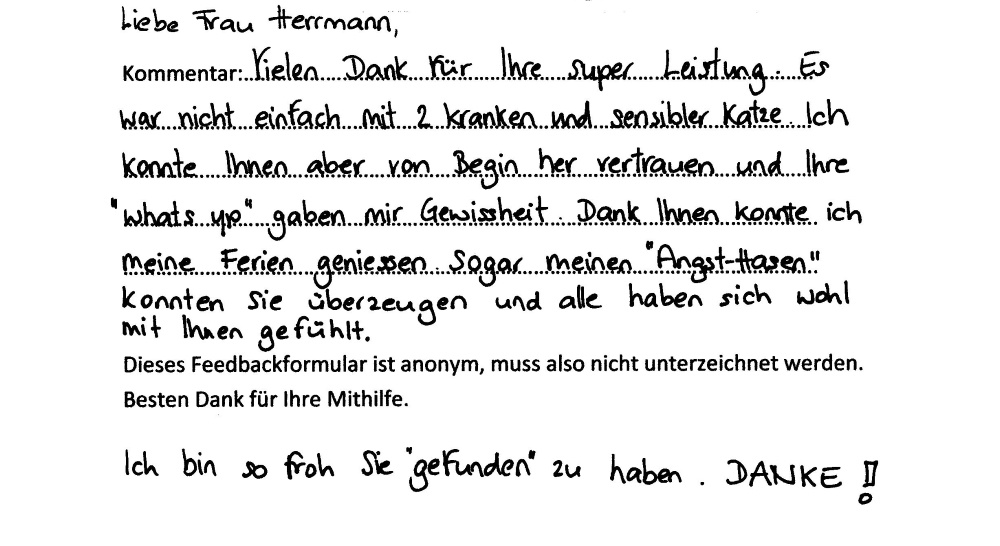 Liebe Frau Herrmann,
Kommentar: Vielen Dank für Ihre super Leistung. Es
war nicht einfach mit 2 kranken und sensibler Katze. Ich
konnte Ihnen aber von Begin her vertrauen und Ihre
"whats up" gaben mir Gewissheit. Dank Ihnen konnte ich
meine Ferien geniessen. Sogar meinen "Angst-Hasen"
konnten Sie überzeugen und alle haben sich wohl
mit Ihnen gefühlt.
Dieses Feedbackformular ist anonym, muss also nicht unterzeichnet werden.
Besten Dank für Ihre Mithilfe.
Ich bin so froh Sie "gefunden" zu haben. DANKE!